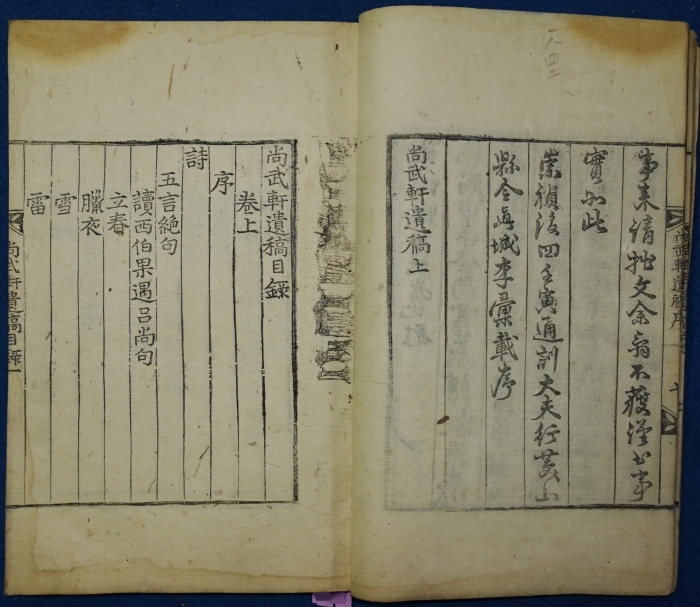 事来請拙文余窃不獲謹書事
實如此
崇禎後四壬寅通訓大夫行黄山
縣令真城李彙載序
尚武軒遺稿上
尚武軒遺稿序
一八四二
尚武軒遺稿目錄
卷上
序
詩
五言絶句
讀西伯果遇呂尚句
立春
臘衣
雪
雷
尚武軒遺稿目錄 一